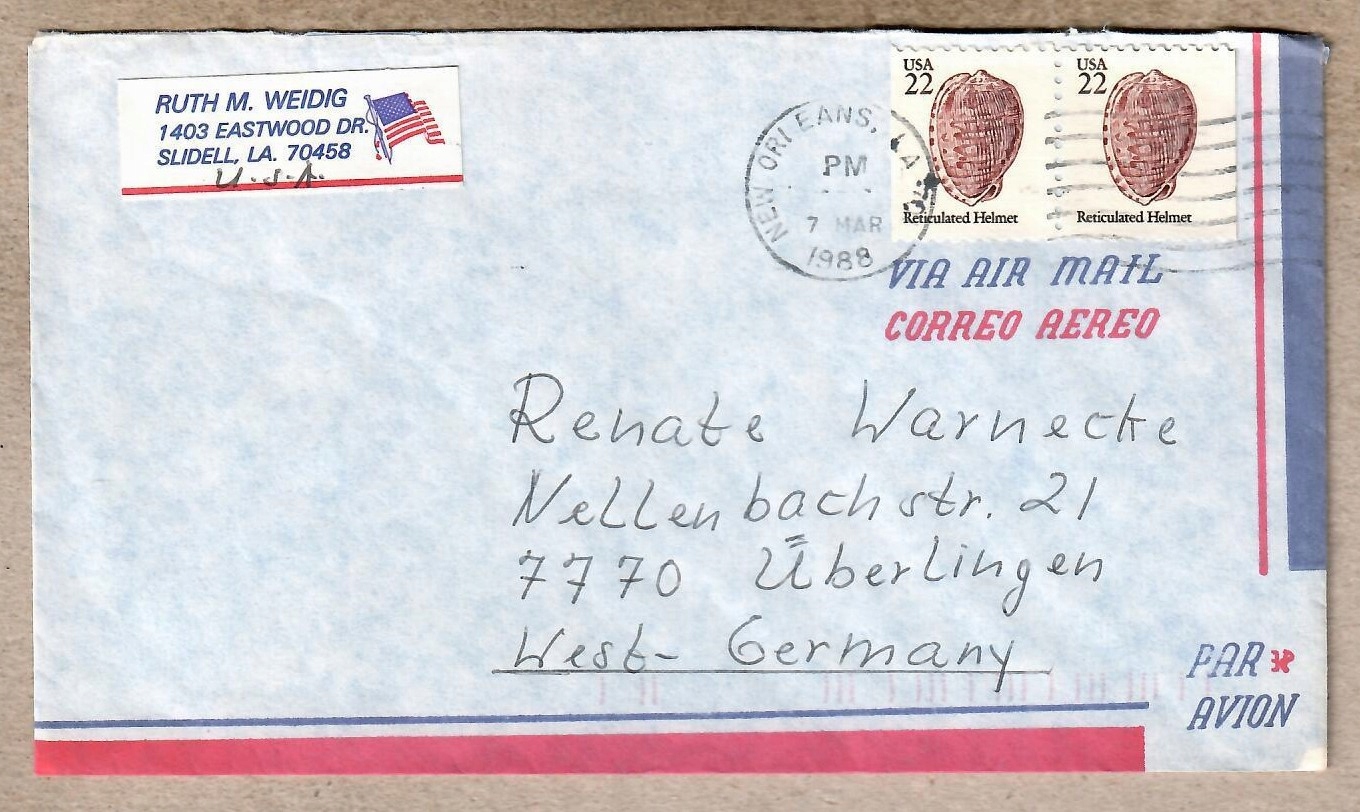 RUTH M. WEIDIG
1403 EASTWOOD DR.
SLIDELL, LA. 70458
U.S.A.
NEW ORLEANS, LA
PM
7 MAR
1988
USA
22
Reticulated Helmet
USA
22
Reticulated Helmet
VIA AIR MAIL
CORREO AEREO
Renate Warnecke
Nellenbachstr. 21
7770 Überlingen
West-Germany
PAR
AVION